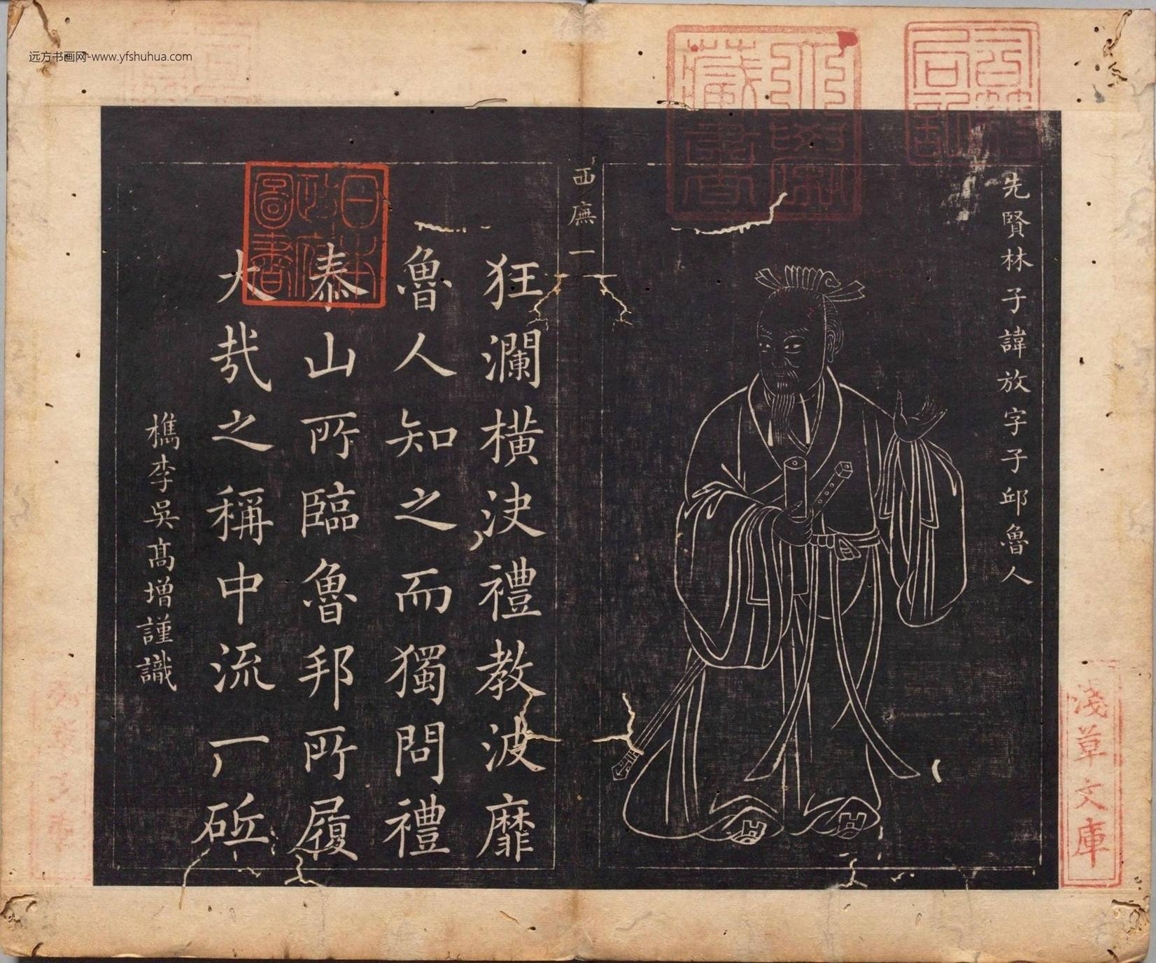 远方书画网-www.yfshuhua.com
先賢林子諱放字子邱魯人
西廡一
狂瀾橫決禮教波靡
魯人知之而獨問禮
泰山所臨魯邦所履
大哉之稱中流一砥
檇李吳髙增謹識
日本政府圖書
淺草文庫